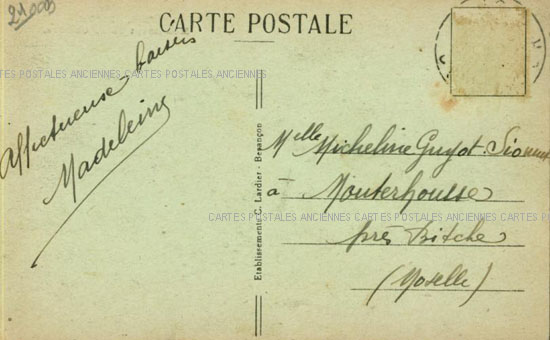 21000
CARTE POSTALE
Affectueuse baisers
Madeleine
Etablissements C. Lardier - Besançon
Melle Micheline Guyot-
à Mouterhousse
près Bitche
(Moselle)
CARTES POSTALES ANCIENNES CARTES POSTALES ANCIENNES
CARTES POSTALES ANCIENNES CARTES POSTALES ANCIENNES CARTES POSTALES